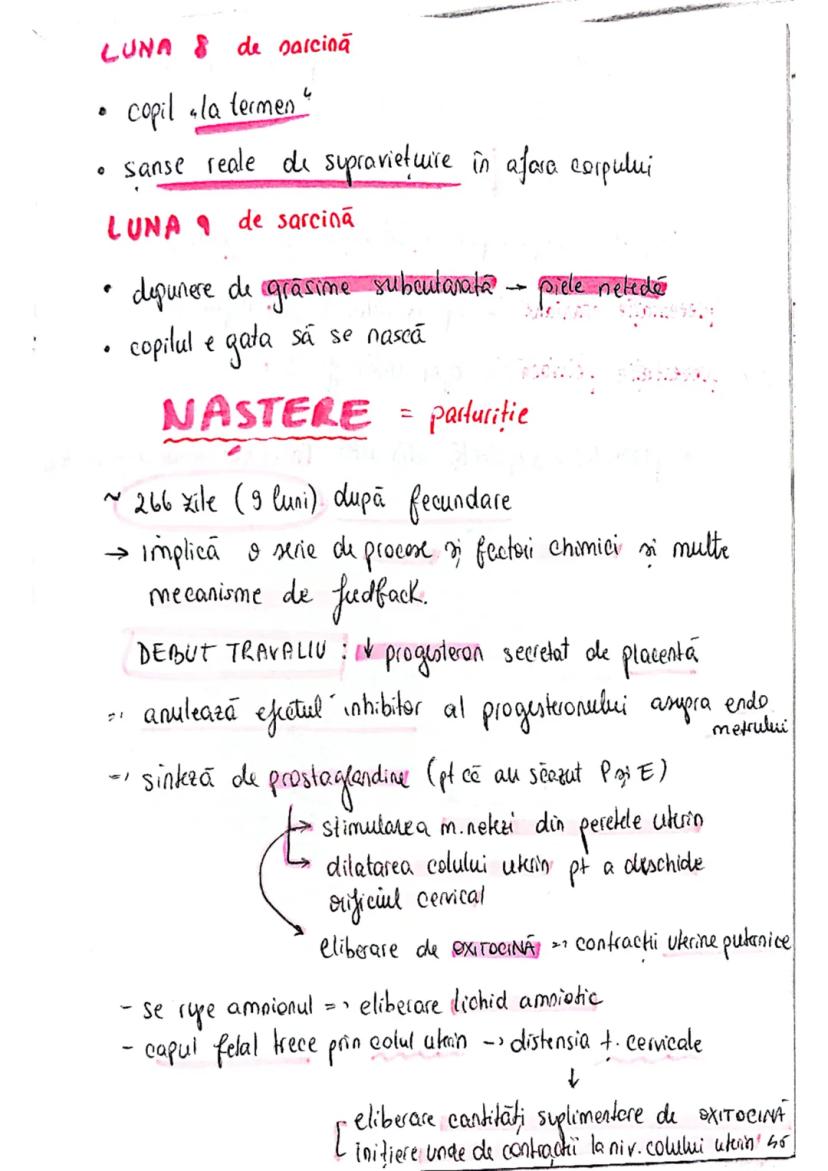 LUNA 8 de sarcină
• copil „la termen“
• șanse reale de supraviețuire în afara corpului
LUNA 9 de sarcină
• depunere de grăsime subcutanată → piele netedă
• copilul e gata să se nască
NAȘTERE = parturiție
~ 266 zile (9 luni) după fecundare
→ implică o serie de procese și factori chimici și multe
mecanisme de feedback.
DEBUT TRAVALIU : ↓ progesteron secretat de placentă
=> anulează efectul inhibitor al progesteronului asupra endo
metrului
=> sinteză de prostaglandine (pt că au scăzut P și E)
→ stimularea m. netezi din peretele uterin
→ dilatarea colului uterin pt a deschide
orificiul cervical
eliberare de OXITOCINĂ => contracții uterine puternice
- se rupe amnionul => eliberare lichid amniotic
- capul fetal trece prin colul uterin -> distensia t. cervicale
↓
eliberare cantități suplimentare de OXITOCINĂ
inițiere unde de contracții la niv. colului uterin